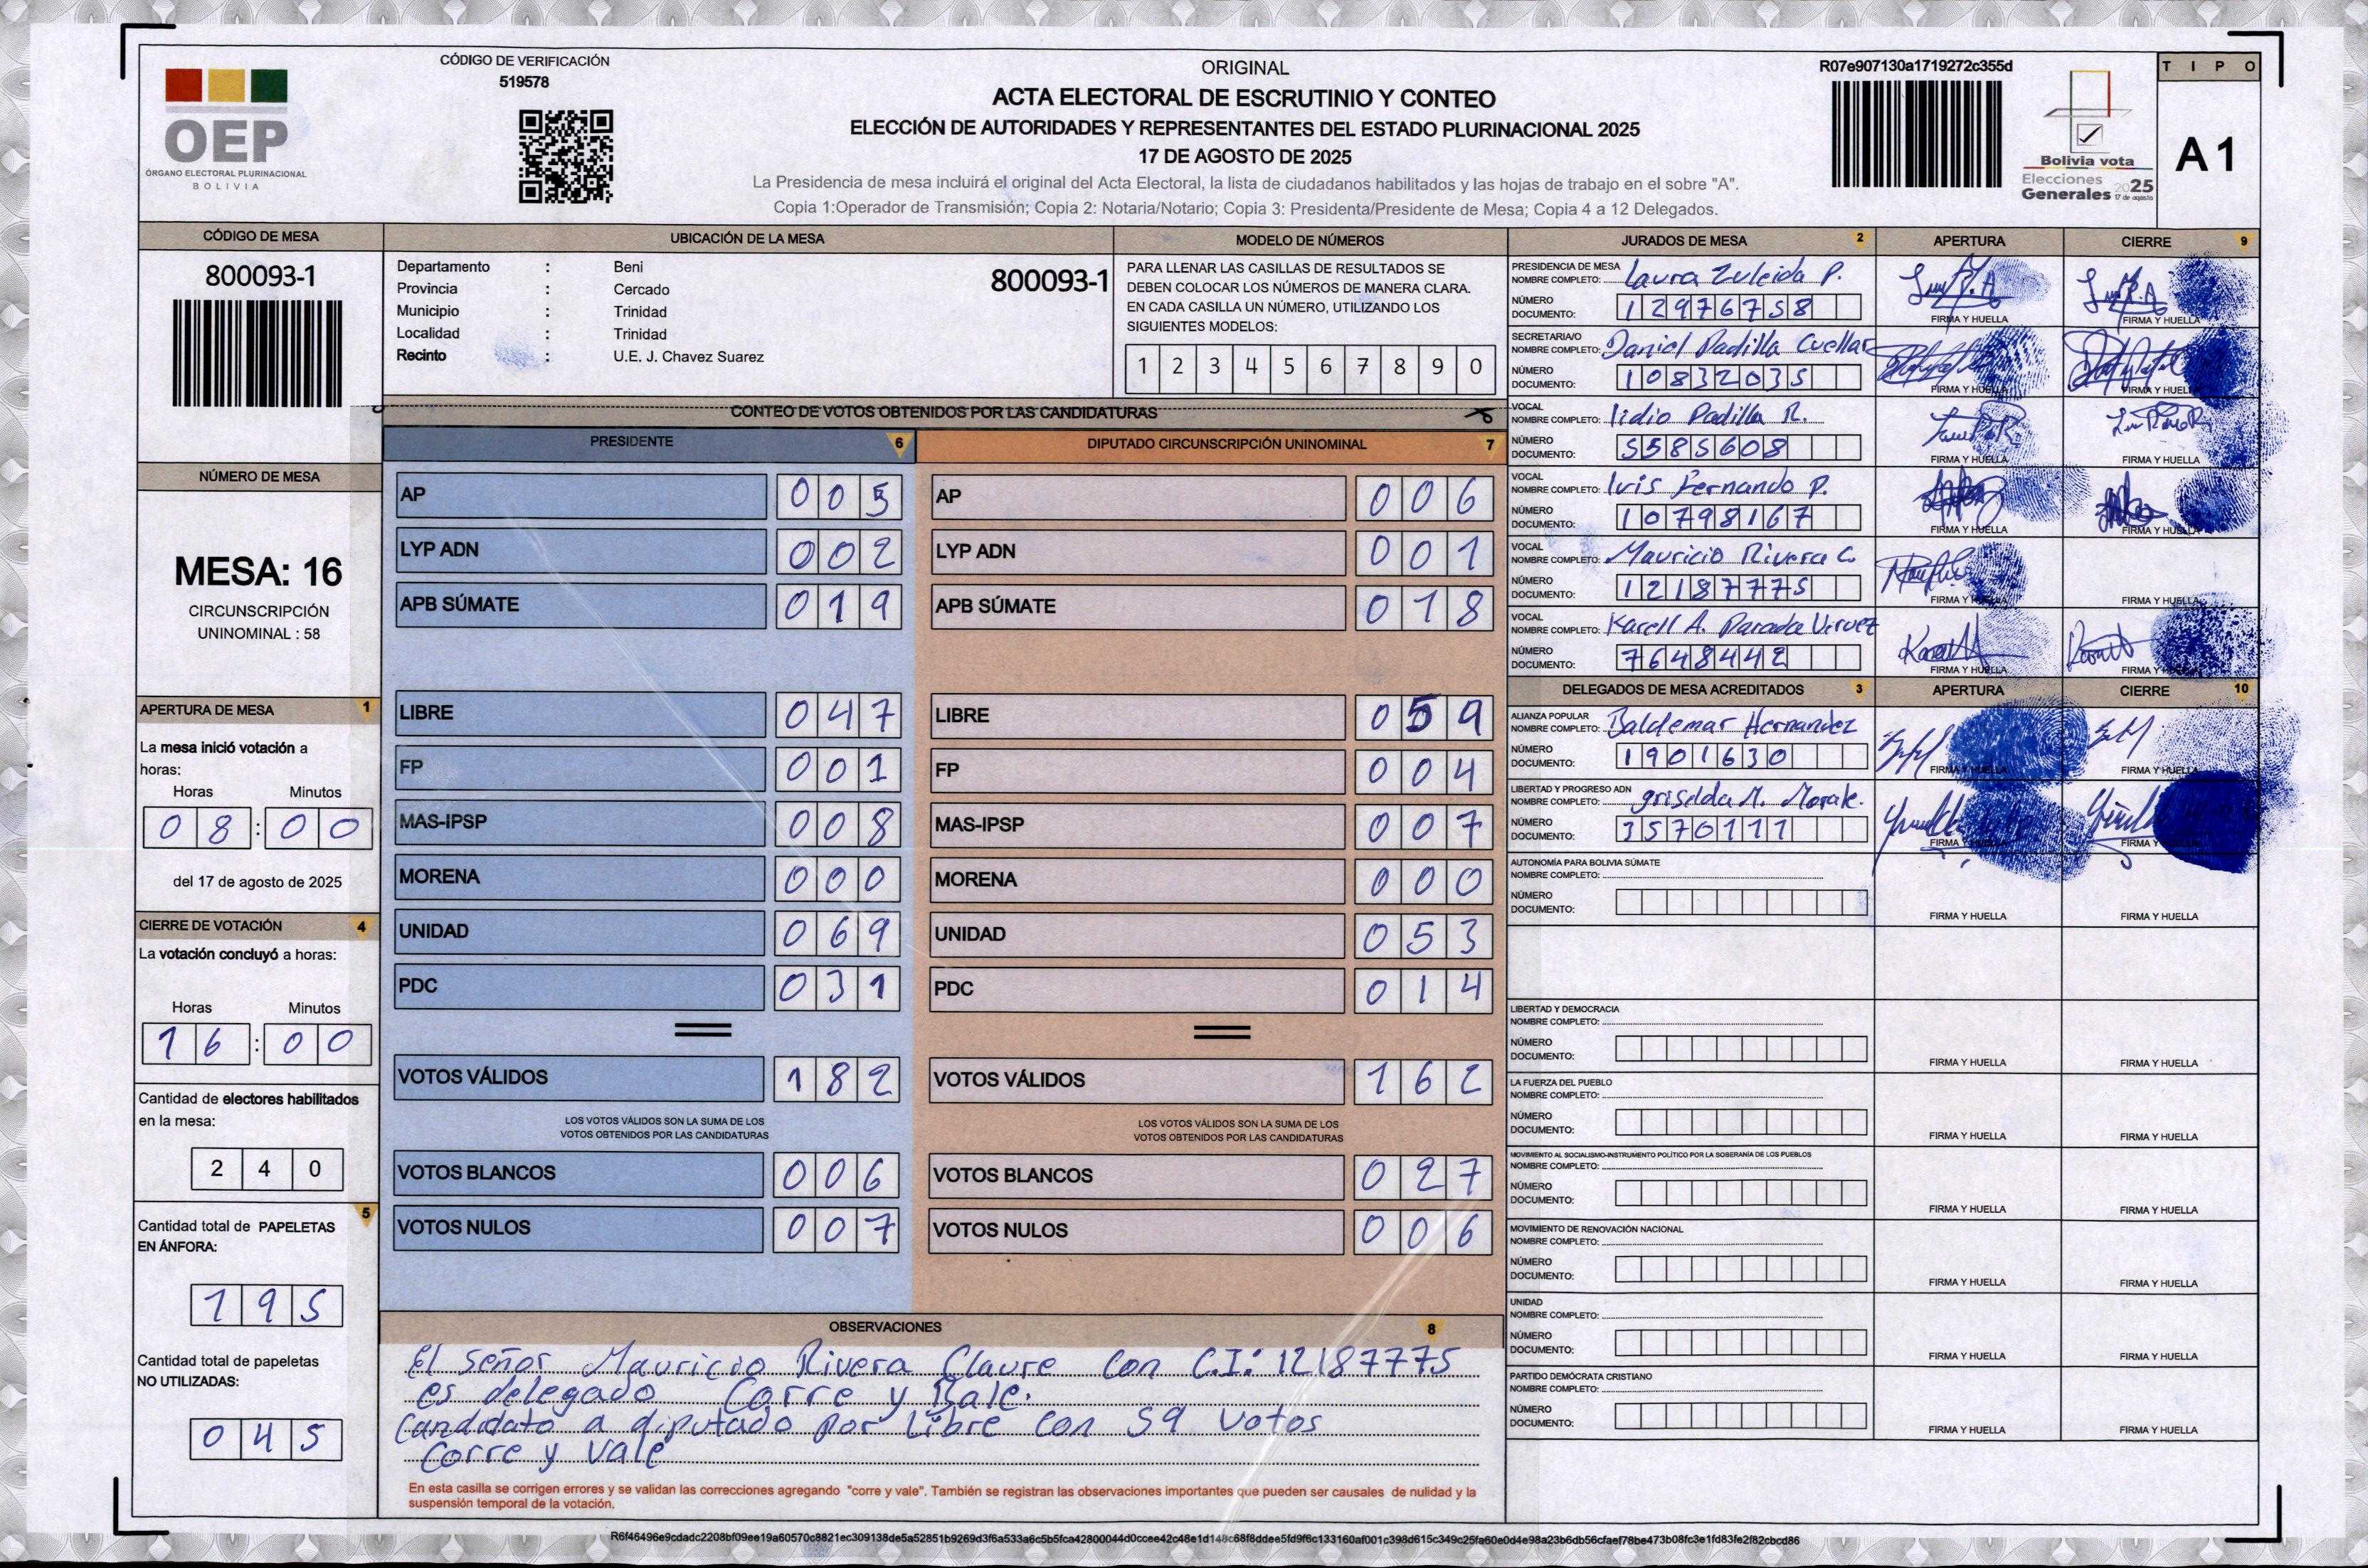 CÓDIGO DE VERIFICACIÓN
519578
OEP
ÓRGANO ELECTORAL PLURINACIONAL
BOLIVIA
ORIGINAL
ACTA ELECTORAL DE ESCRUTINIO Y CONTEO
ELECCIÓN DE AUTORIDADES Y REPRESENTANTES DEL ESTADO PLURINACIONAL 2025
17 DE AGOSTO DE 2025
La Presidencia de mesa incluirá el original del Acta Electoral, la lista de ciudadanos habilitados y las hojas de trabajo en el sobre "A".
Copia 1:Operador de Transmisión; Copia 2: Notaria/Notario; Copia 3: Presidenta/Presidente de Mesa; Copia 4 a 12 Delegados.
R07e907130a1719272c355d
Bolivia vota
Elecciones
Generales 2025
17 de agosto
TIPO
A1
CÓDIGO DE MESA
800093-1
UBICACIÓN DE LA MESA
Departamento : Beni
Provincia : Cercado
Municipio : Trinidad
Localidad : Trinidad
Recinto : U.E. J. Chavez Suarez
800093-1
MODELO DE NÚMEROS
PARA LLENAR LAS CASILLAS DE RESULTADOS SE
DEBEN COLOCAR LOS NÚMEROS DE MANERA CLARA.
EN CADA CASILLA UN NÚMERO, UTILIZANDO LOS
SIGUIENTES MODELOS:
1 2 3 4 5 6 7 8 9 0
NÚMERO DE MESA
MESA: 16
CIRCUNSCRIPCIÓN
UNINOMINAL : 58
APERTURA DE MESA 1
La mesa inició votación a
horas:
Horas Minutos
08:00
del 17 de agosto de 2025
CIERRE DE VOTACIÓN 4
La votación concluyó a horas:
Horas Minutos
16:00
Cantidad de electores habilitados
en la mesa:
240
5
Cantidad total de PAPELETAS
EN ÁNFORA:
195
Cantidad total de papeletas
NO UTILIZADAS:
045
CONTEO DE VOTOS OBTENIDOS POR LAS CANDIDATURAS
PRESIDENTE 6
AP 005
LYP ADN 002
APB SÚMATE 019
LIBRE 047
FP 001
MAS-IPSP 008
MORENA 000
UNIDAD 069
PDC 031
VOTOS VÁLIDOS 182
LOS VOTOS VÁLIDOS SON LA SUMA DE LOS
VOTOS OBTENIDOS POR LAS CANDIDATURAS
VOTOS BLANCOS 006
VOTOS NULOS 007
DIPUTADO CIRCUNSCRIPCIÓN UNINOMINAL 7
AP 006
LYP ADN 001
APB SÚMATE 018
LIBRE 059
FP 004
MAS-IPSP 007
MORENA 000
UNIDAD 053
PDC 014
VOTOS VÁLIDOS 162
LOS VOTOS VÁLIDOS SON LA SUMA DE LOS
VOTOS OBTENIDOS POR LAS CANDIDATURAS
VOTOS BLANCOS 027
VOTOS NULOS 006
OBSERVACIONES 8
El señor Mauricio Rivera Claure con C.I: 12187775
es delegado Corre y Bale.
Candidato a diputado por Libre con 59 votos
Corre y vale
En esta casilla se corrigen errores y se validan las correcciones agregando "corre y vale". También se registran las observaciones importantes que pueden ser causales de nulidad y la
suspensión temporal de la votación.
JURADOS DE MESA 2 APERTURA CIERRE 9
PRESIDENCIA DE MESA
NOMBRE COMPLETO: Laura Zuleida P.
NÚMERO
DOCUMENTO: 12976758
FIRMA Y HUELLA FIRMA Y HUELLA
SECRETARIA/O
NOMBRE COMPLETO: Daniel Padilla Cuellar
NÚMERO
DOCUMENTO: 10832035
FIRMA Y HUELLA FIRMA Y HUELLA
VOCAL
NOMBRE COMPLETO: lidio Padilla R.
NÚMERO
DOCUMENTO: 5585608
FIRMA Y HUELLA FIRMA Y HUELLA
VOCAL
NOMBRE COMPLETO: luis Fernando P.
NÚMERO
DOCUMENTO: 10798167
FIRMA Y HUELLA FIRMA Y HUELLA
VOCAL
NOMBRE COMPLETO: Mauricio Rivera C
NÚMERO
DOCUMENTO: 12187775
FIRMA Y HUELLA FIRMA Y HUELLA
VOCAL
NOMBRE COMPLETO: Karell A. Parada
NÚMERO
DOCUMENTO: 7648442
FIRMA Y HUELLA FIRMA Y HUELLA
DELEGADOS DE MESA ACREDITADOS 3 APERTURA CIERRE 10
ALIANZA POPULAR
NOMBRE COMPLETO: Baldemar Hernandez
NÚMERO
DOCUMENTO: 1901630
FIRMA Y HUELLA FIRMA Y HUELLA
LIBERTAD Y PROGRESO ADN
NOMBRE COMPLETO: griselda M. Morale.
NÚMERO
DOCUMENTO: 3570111
FIRMA Y HUELLA FIRMA Y HUELLA
AUTONOMÍA PARA BOLIVIA SÚMATE
NOMBRE COMPLETO:
NÚMERO
DOCUMENTO:
FIRMA Y HUELLA FIRMA Y HUELLA
LIBERTAD Y DEMOCRACIA
NOMBRE COMPLETO:
NÚMERO
DOCUMENTO:
FIRMA Y HUELLA FIRMA Y HUELLA
LA FUERZA DEL PUEBLO
NOMBRE COMPLETO:
NÚMERO
DOCUMENTO:
FIRMA Y HUELLA FIRMA Y HUELLA
MOVIMIENTO AL SOCIALISMO-INSTRUMENTO POLÍTICO POR LA SOBERANÍA DE LOS PUEBLOS
NOMBRE COMPLETO:
NÚMERO
DOCUMENTO:
FIRMA Y HUELLA FIRMA Y HUELLA
MOVIMIENTO DE RENOVACIÓN NACIONAL
NOMBRE COMPLETO:
NÚMERO
DOCUMENTO:
FIRMA Y HUELLA FIRMA Y HUELLA
UNIDAD
NOMBRE COMPLETO:
NÚMERO
DOCUMENTO:
FIRMA Y HUELLA FIRMA Y HUELLA
PARTIDO DEMÓCRATA CRISTIANO
NOMBRE COMPLETO:
NÚMERO
DOCUMENTO:
FIRMA Y HUELLA FIRMA Y HUELLA